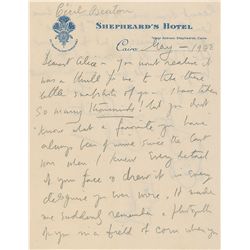 Cecil Beaton
SHEPHEARD'S HOTEL
Cairo May - 1942
Dearest Alice - You won't realise it
was a thrill for me to take those
little snapshots of you - I have taken
so many thousands! but you don't
know what a favourite you have
always been of mine since the last
war when I knew every detail
of your face & drew it in every
disguise you ever wore. It made
me suddenly remember a photograph
of you in a field of corn when you